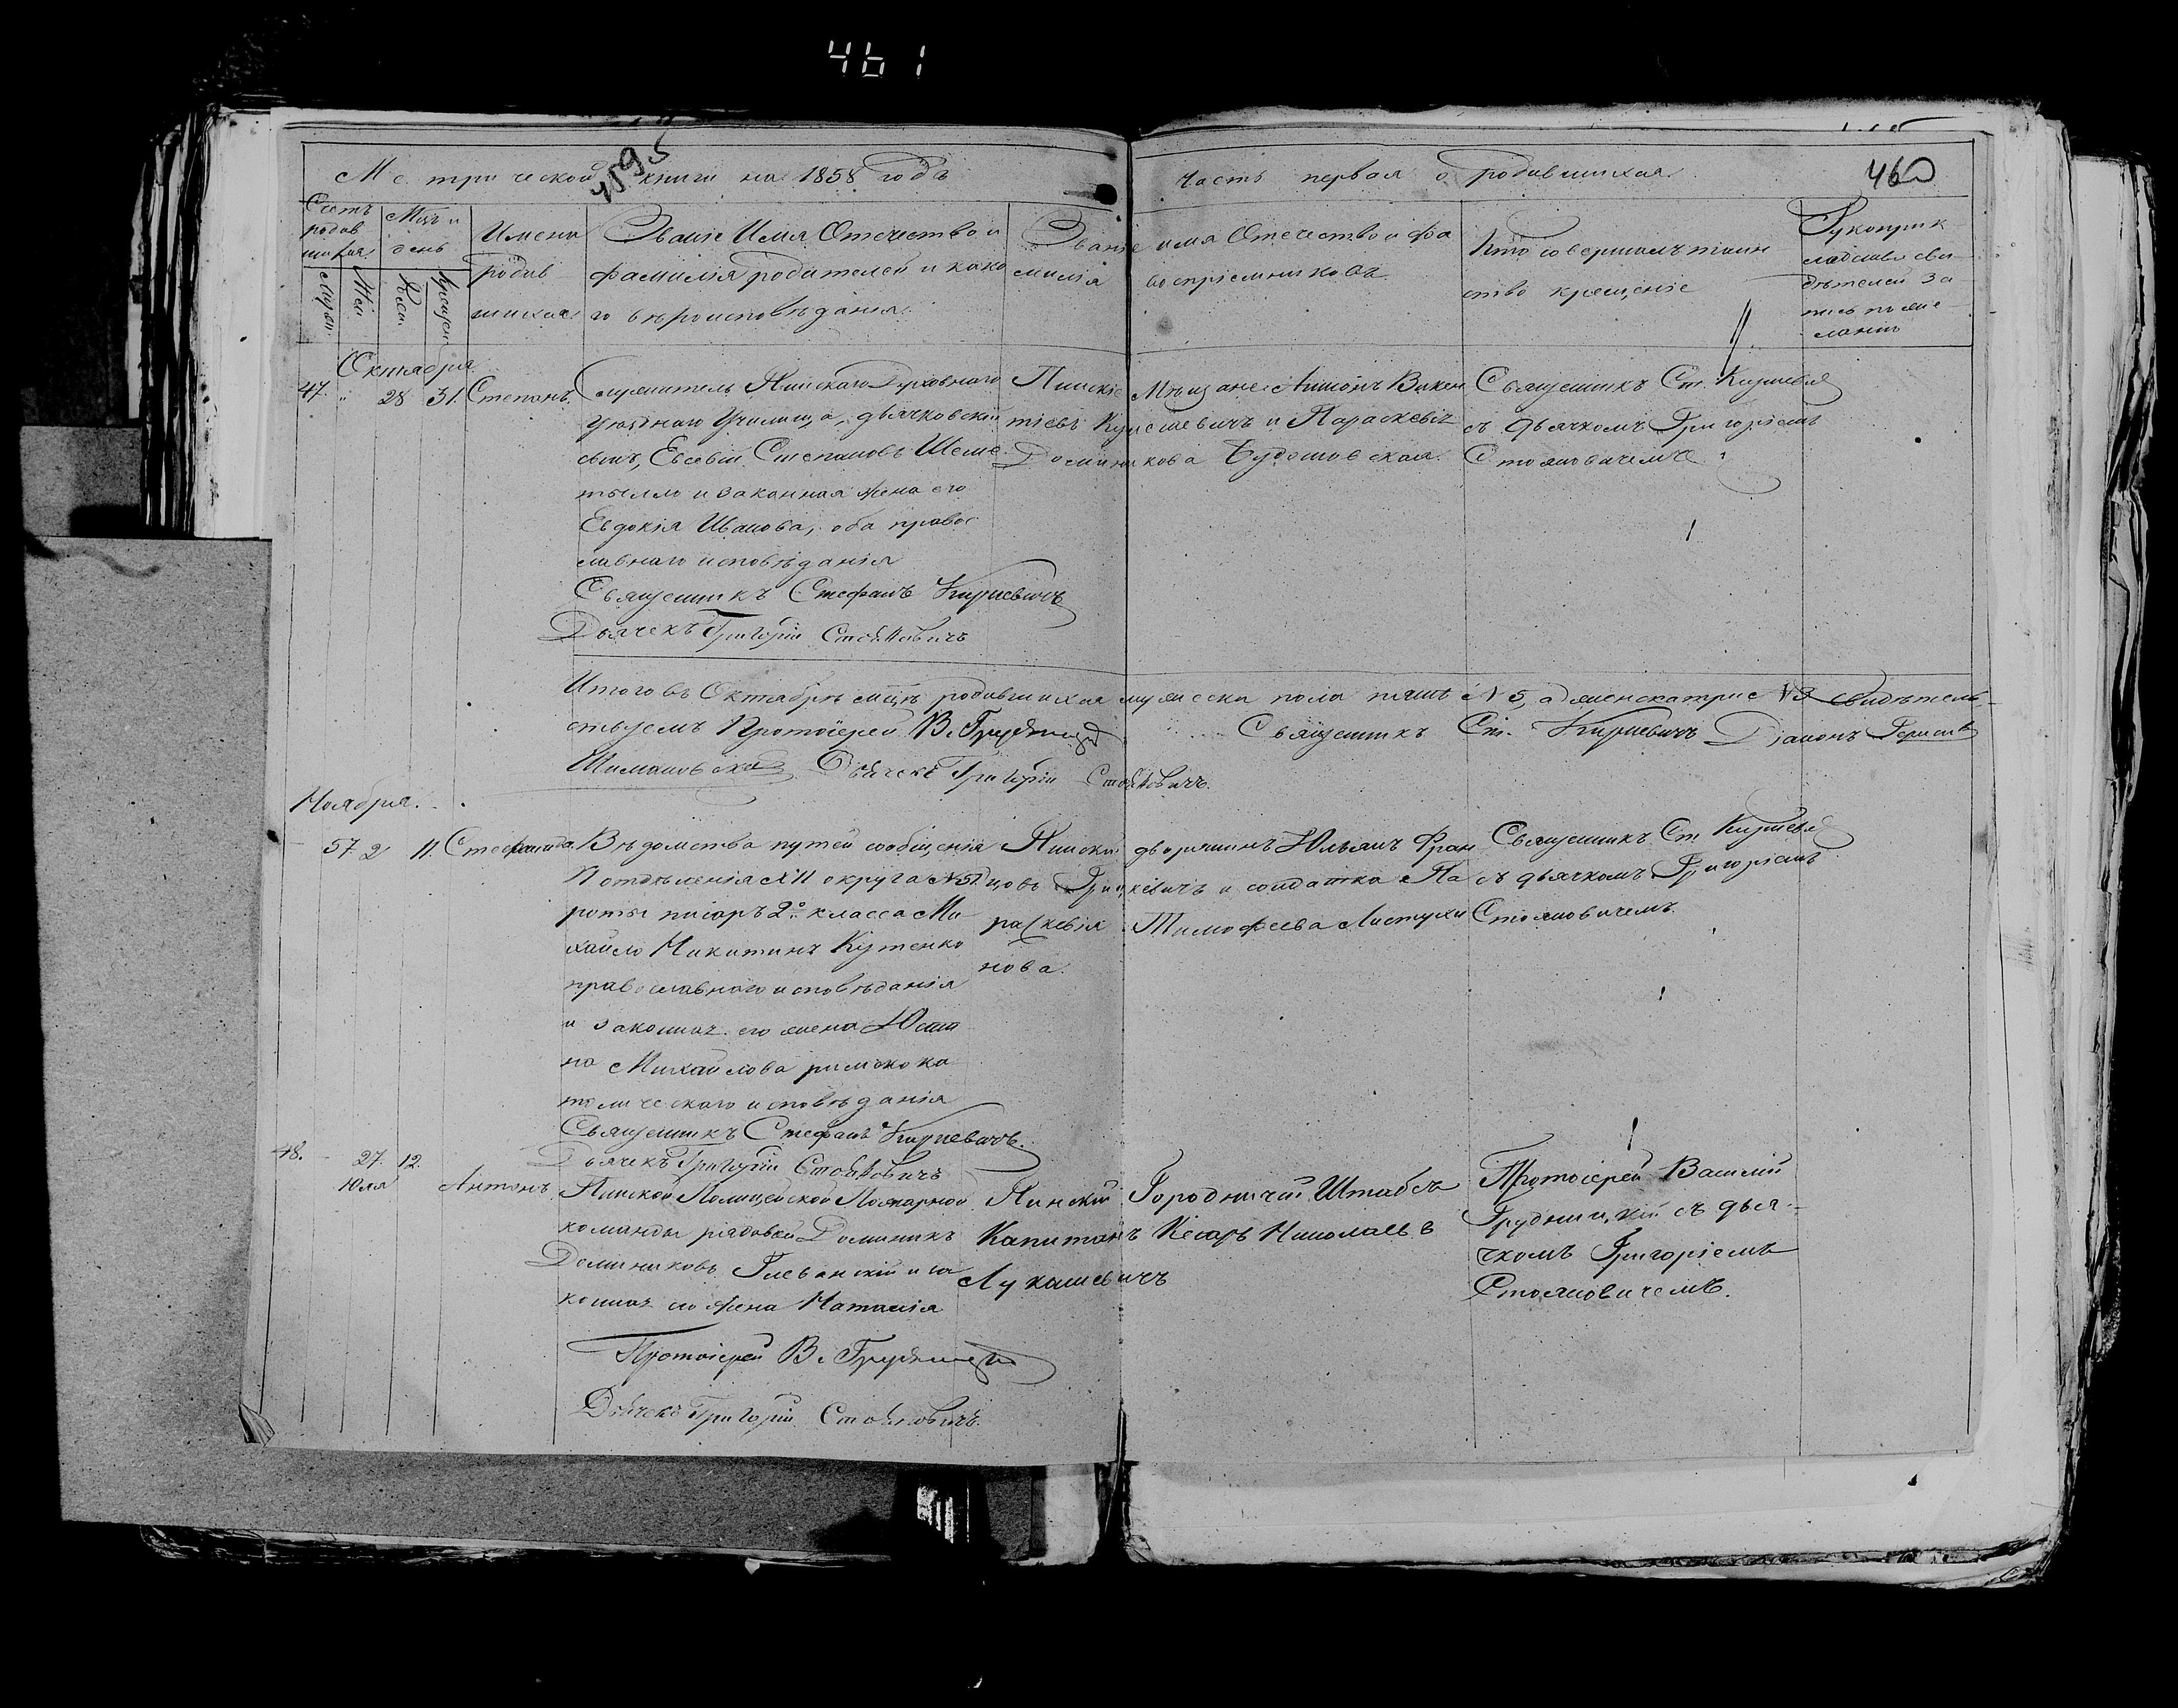 461
4595
Метрической книги на 1858 годъ
Часть первая о родившихся
460
Счетъ родившихся
Мцъ и день
Имена родившихся
Званіе Имя Отечество и фамилія родителей и како
го вѣроисповѣданія
Званіе имя Отечество и фа
милія воспріемниковъ
Кто совершалъ таин
ство крещенія
Рукоприк
ладство сви
дѣтелей за
пись по же
ланію
Октября
47. " 28 31. Степанъ.
Служитель Пинскаго Духовнаго
уѣзднаго Училища, дьячковскій
сынъ, Евсевій Степановъ Шеме
тылло и законная жена его
Евдокія Иванова, оба правос
лавнаго исповѣданія
Священникъ Стефанъ Кирпевичъ
Дьячекъ Григорій Стояновичъ
Пинскіе Мѣщане: Антонъ Викен
тіевъ и Параскевія
Доминикова
Священникъ Ст.
съ дьячкомъ Григоріемъ
Стояновичемъ
Итого въ Октябрѣ мцѣ родившихся мужеска пола пять № 5, а женска три № 3 свидѣтель-
ствуемъ Протоіерей В. Грудницкій Священникъ Ст. Кирпевичъ Діаконъ
Дьячекъ Григорій Стояновичъ.
Ноября.
57 2 11. Стефанида.
Вѣдомства путей сообщенія
П отдѣленія XII округа № 51
роты писарь 2го класса Ми
хайло Никитинъ Кутенко
православнаго исповѣданія
и законная его жена Юсти
на Михайлова римскока
толическаго исповѣданія
Священникъ Стефанъ Кирпевичъ.
Дьячекъ Григорій Стояновичъ
Пинскій дворянинъ Юльянъ Фран
цовъ Грицкевичъ и солдатка Па
раскевія Тимофеева Листухи
нова.
Священникъ Ст.
съ дьячкомъ Григоріемъ
Стояновичемъ.
48. 27. 12.
Юля
Антонъ.
Пинской Полицейской Пожарной
команды рядовой Доминикъ
Доминиковъ и за
конная его жена Наталія
Протоіерей В. Грудницкій
Дьячекъ Григорій Стояновичъ.
Пинскій Городничій Штабсъ
Капитанъ Кесарь Николаевъ
Лукашевичъ
Протоіерей Василій
Грудницкій съ дья-
чкомъ Григоріемъ
Стояновичемъ.